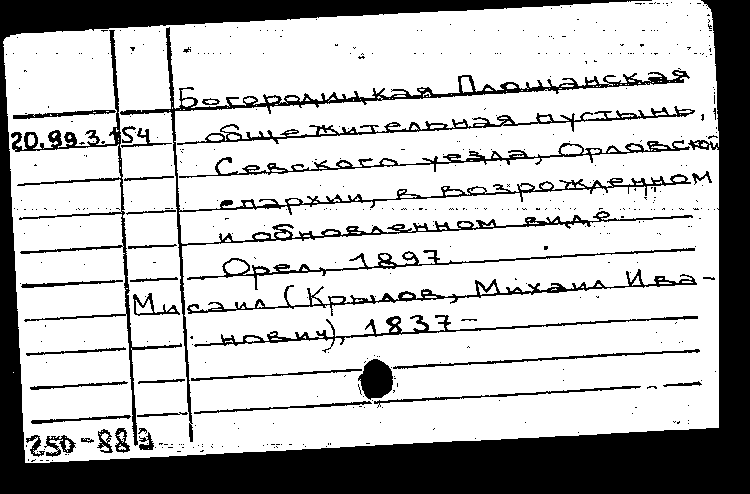 Богородицкая Площанская
20.99.3.154 общежительная пустынь,
Севского уезда, Орловской
епархии, в возрожденном
и обновленном виде.
Орел, 1897.
Мисаил (Крылов, Михаил Ива-
нович), 1837-
250-889